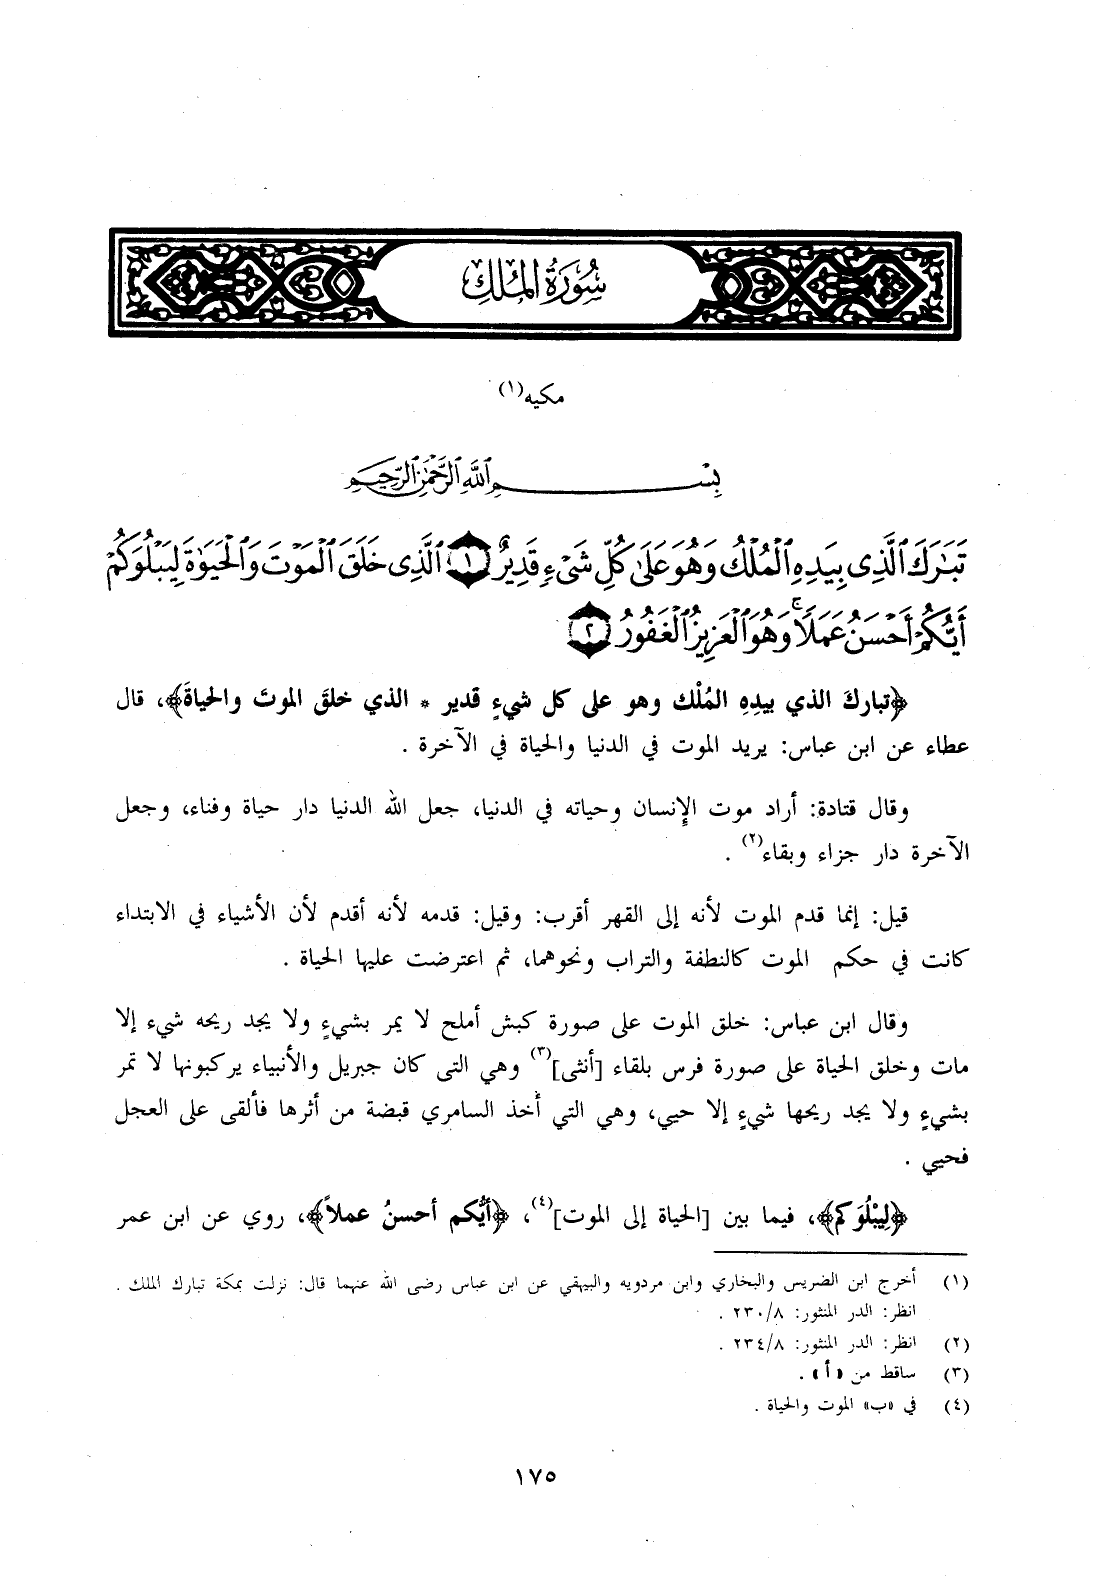 سُورَةُ الْمُلْكِ
مكيه(١)
بِسْمِ ٱللَّهِ ٱلرَّحْمَٰنِ ٱلرَّحِيمِ
تَبَٰرَكَ ٱلَّذِى بِيَدِهِ ٱلْمُلْكُ وَهُوَ عَلَىٰ كُلِّ شَىْءٍ قَدِيرٌ ١ ٱلَّذِى خَلَقَ ٱلْمَوْتَ وَٱلْحَيَوٰةَ لِيَبْلُوَكُمْ
أَيُّكُمْ أَحْسَنُ عَمَلًا ۚ وَهُوَ ٱلْعَزِيزُ ٱلْغَفُورُ ٢
﴿تباركَ الذي بيدِهِ المُلْك وهو على كل شيءٍ قدير * الذي خلقَ الموتَ والحياةَ﴾، قال
عطاء عن ابن عباس: يريد الموت في الدنيا والحياة في الآخرة .
وقال قتادة: أراد موت الإنسان وحياته في الدنيا، جعل الله الدنيا دار حياة وفناء، وجعل
الآخرة دار جزاء وبقاء(٢) .
قيل: إنما قدم الموت لأنه إلى القهر أقرب: وقيل: قدمه لأنه أقدم لأن الأشياء في الابتداء
كانت في حكم الموت كالنطفة والتراب ونحوهما، ثم اعترضت عليها الحياة .
وقال ابن عباس: خلق الموت على صورة كبش أملح لا يمر بشيءٍ ولا يجد ريحه شيء إلا
مات وخلق الحياة على صورة فرس بلقاء [أنثى](٣) وهي التى كان جبريل والأنبياء يركبونها لا تمر
بشيءٍ ولا يجد ريحها شيءٍ إلا حيي، وهي التي أخذ السامري قبضة من أثرها فألقى على العجل
فحيي .
﴿لِيَبْلُوَكم﴾، فيما بين [الحياة إلى الموت](٤)، ﴿أيُّكم أحسنُ عملاً﴾، روي عن ابن عمر
(١) أخرج ابن الضريس والبخاري وابن مردويه والبيهقي عن ابن عباس رضى الله عنهما قال: نزلت بمكة تبارك الملك .
انظر: الدر المنثور: ٢٣٠/٨ .
(٢) انظر: الدر المنثور: ٢٣٤/٨ .
(٣) ساقط من «أ» .
(٤) في «ب» الموت والحياة .
١٧٥